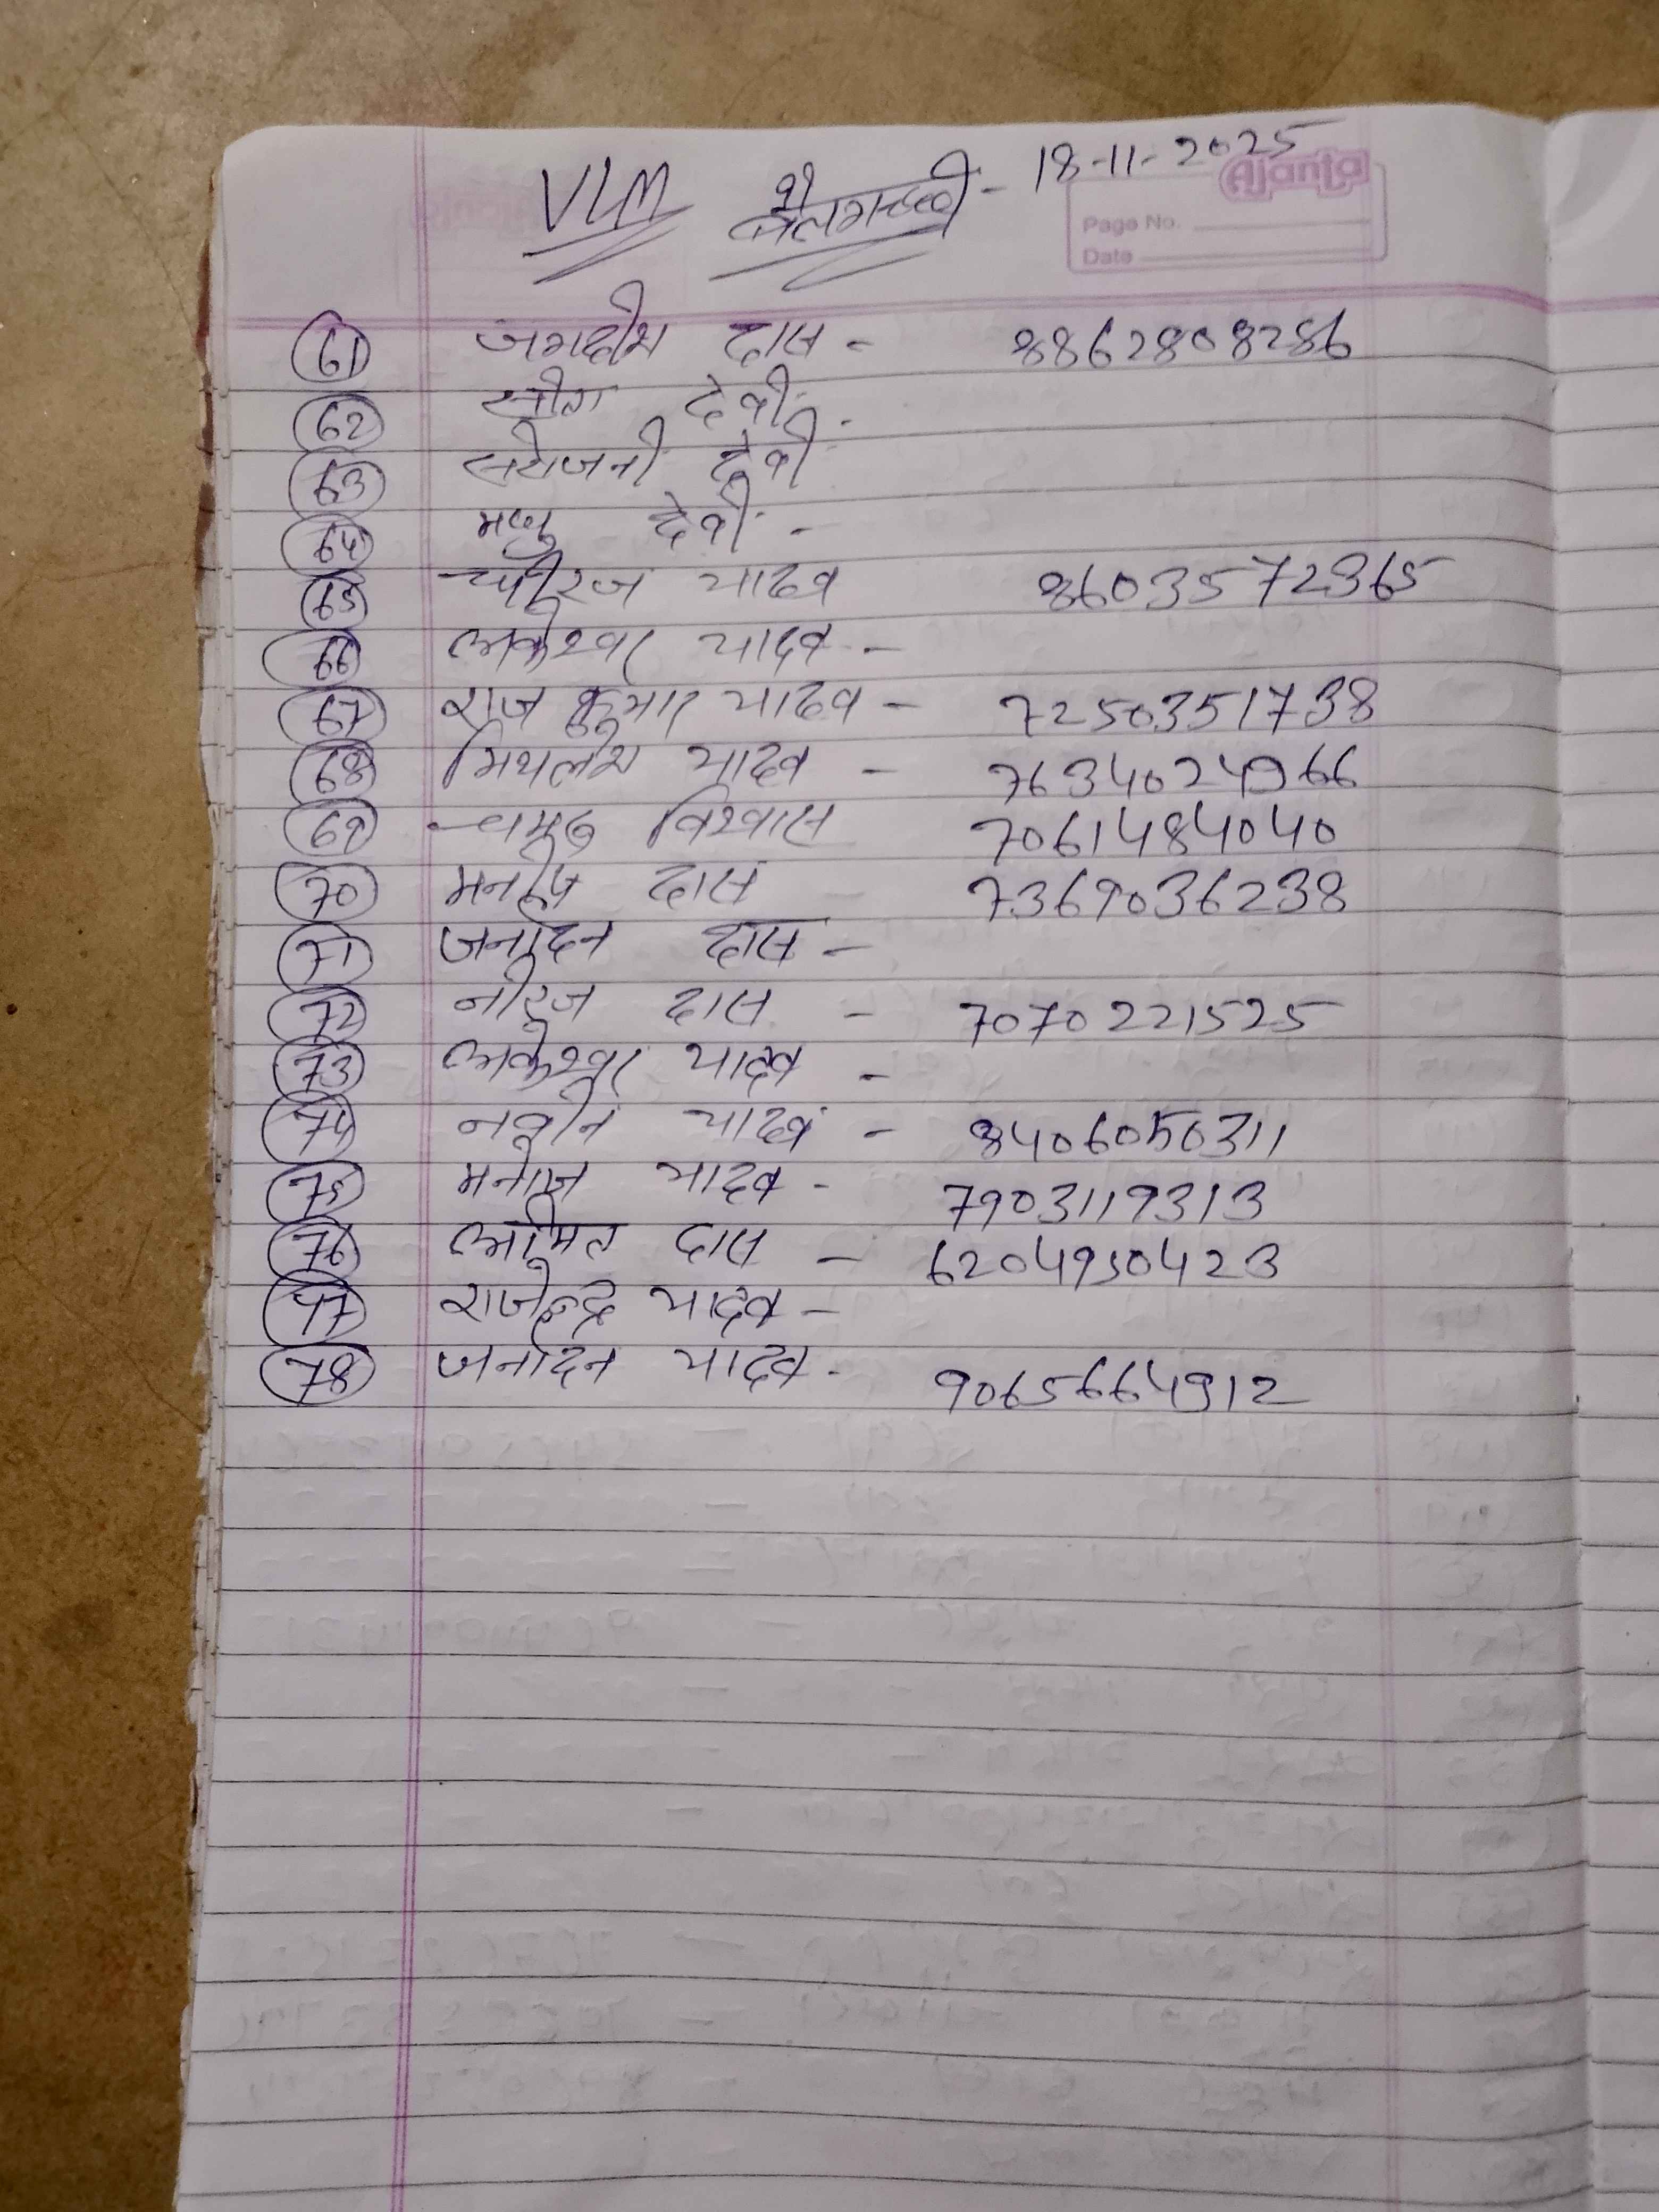 VLM बेलगच्छी - 18-11-2025
Ajanta
Page No.
Date
61 जगदीश दास - 8862808286
62 देवी
63 सरोजनी देवी
64 मञ्जु देवी -
65 धीरज यादव 8603572365
66 लकेश्वर यादव -
67 राज कुमार यादव - 7250351738
68 मिथलेश यादव - 7634024966
69 विश्वास 7061484040
70 मनदीप दास 7369036238
71 जर्नादन दास -
72 नीरज दास - 7070221525
73 लकेश्वर यादव -
74 नवीन यादव - 8406050311
75 मनोज यादव - 7903119313
76 दास - 6204950423
77 राजेन्द्र यादव -
78 जर्नादन यादव - 9065664912